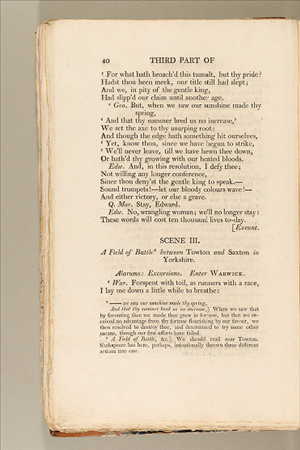 40 THIRD PART OF
' For what hath broach'd this tumult, but thy pride?
Hadst thou been meek, our title still had slept;
And we, in pity of the gentle king,
Had slipp'd our claim until another age.
' Geo. But, when we saw our sunshine made thy
spring,
' And that thy summer bred us no increase,⁵
We set the axe to thy usurping root:
And though the edge hath something hit ourselves,
' Yet, know thou, since we have begun to strike,
' We'll never leave, till we have hewn thee down,
Or bath'd thy growing with our heated bloods.
Edw. And, in this resolution, I defy thee;
Not willing any longer conference,
Since thou deny'st the gentle king to speak.—
Sound trumpets!—let our bloody colours wave!—
And either victory, or else a grave.
Q. Mar. Stay, Edward.
Edw. No, wrangling woman; we'll no longer stay:
These words will cost ten thousand lives to-day.
[Exeunt.
SCENE III.
A Field of Battle⁶ between Towton and Saxton in
Yorkshire.
Alarums: Excursions. Enter WARWICK.
' War. Forspent with toil, as runners with a race,
I lay me down a little while to breathe:
⁵ —— we saw our sunshine made thy spring,
And that thy summer bred us no increase,] When we saw that
by favouring thee we made thee grow in fortune, but that we re-
ceived no advantage from thy fortune flourishing by our favour, we
then resolved to destroy thee, and determined to try some other
means, though our first efforts have failed.
⁶ A Field of Battle, &c.] We should read near Towton.
Shakspeare has here, perhaps, intentionally thrown three different
actions into one.